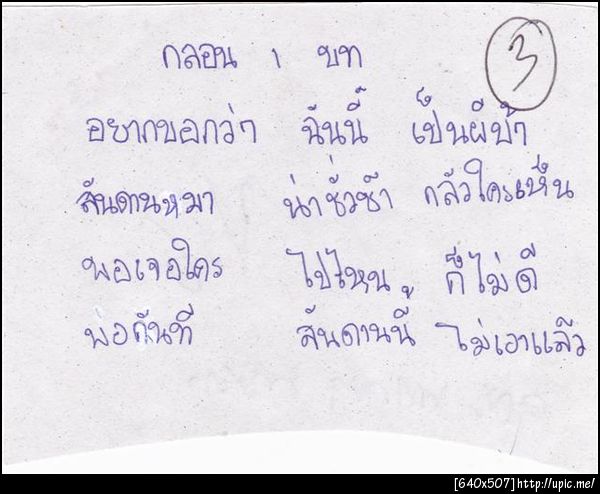 กลอน 1 บท
3
อยากบอกว่า ฉันนี้ เป็นผีบ้า
สันดานหมา น่าชั่วช้า กลัวใครเห็น
พอเจอใคร ไปไหน ก็ไม่ดี
พอกันที สันดานนี้ ไม่เอาแล้ว
[640x507]http://upic.me/